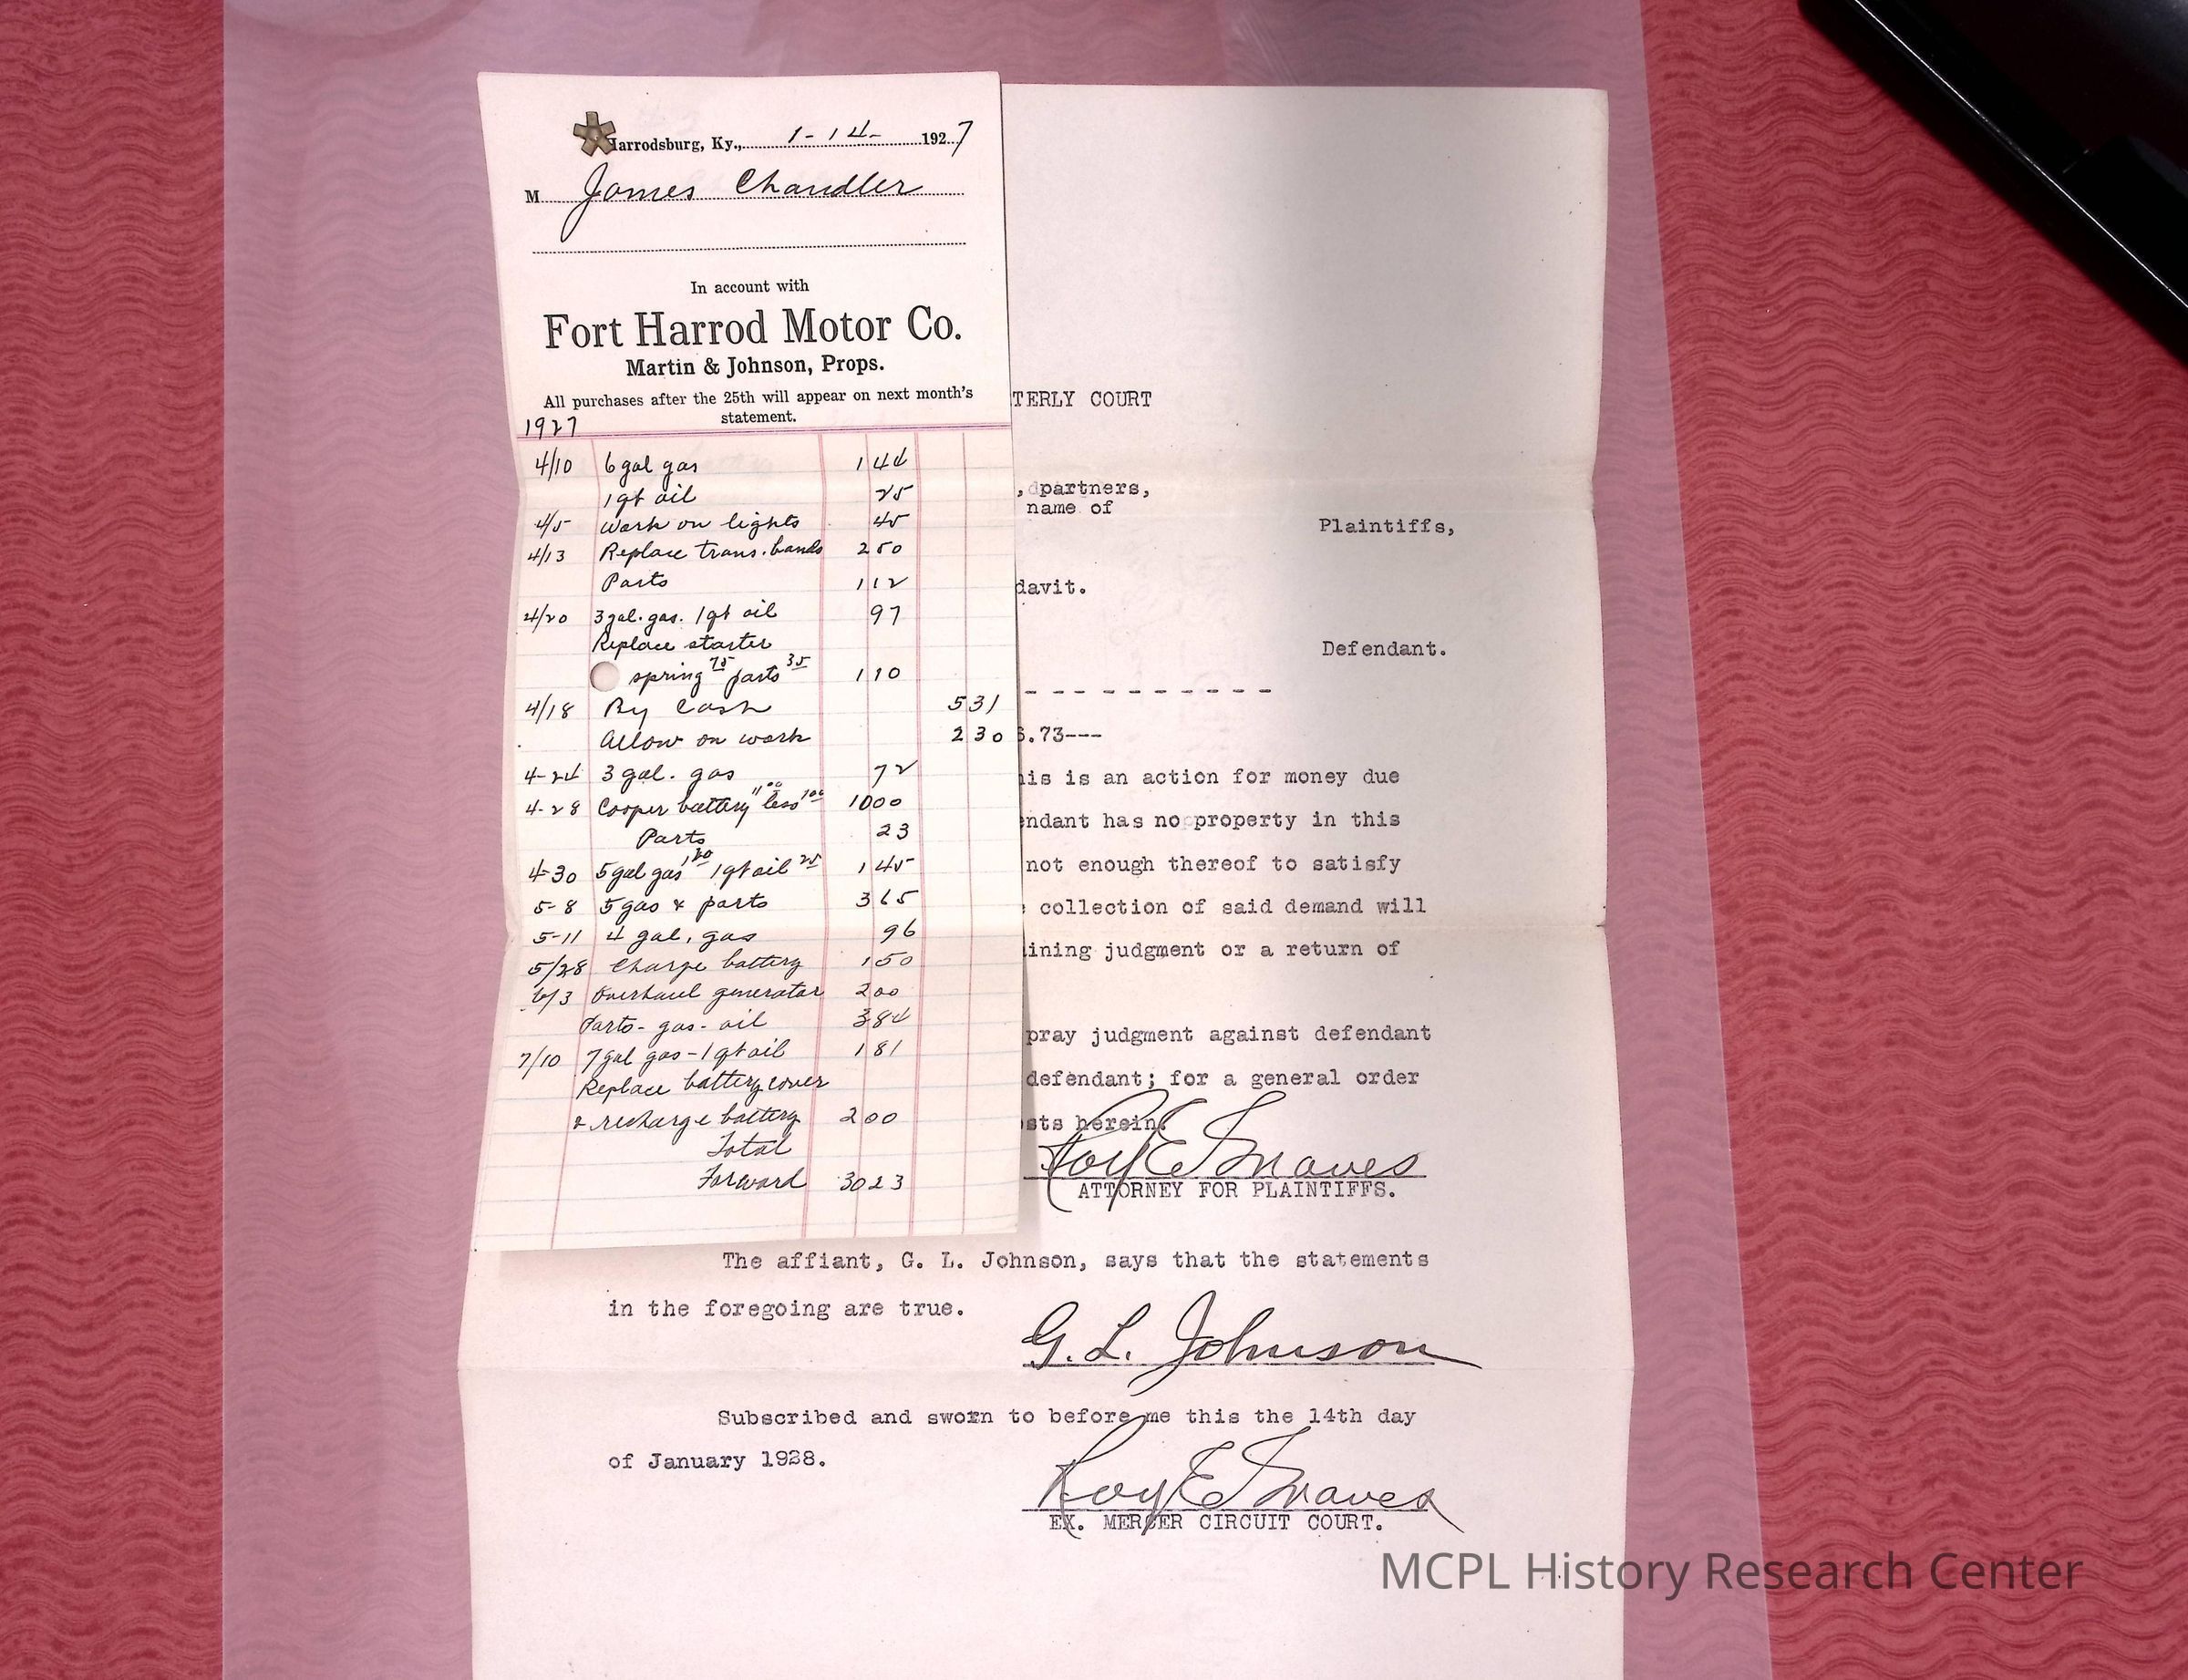 Harrodsburg, Ky., 1-14- 1927
M James Chandler
In account with
Fort Harrod Motor Co.
Martin & Johnson, Props.
All purchases after the 25th will appear on next month's
statement.
1927
4/10 6 gal gas 1 44
1 qt oil 25
4/5 Work on lights 45
4/13 Replace trans. bands 2 50
Parts 1 12
4/20 3 gal. gas. 1 qt oil 97
Replace starter
spring 75 parts 35 1 10
4/18 By Cash 5 31
Allow on work 2 30
4-24 3 gal. gas 72
4-28 Cooper battery 11 00 less 1 00 10 00
Parts 23
4-30 5 gal gas 1 20 1 qt oil 25 1 45
5-8 5 gas & parts 3 65
5-11 4 gal. gas 96
5/28 Charge battery 1 50
6/3 Overhaul generator 2 00
Parts- gas- oil 3 84
7/10 7 gal gas - 1 qt oil 1 81
Replace battery cover
& recharge battery 2 00
Total
Forward 30 23
TERLY COURT
, partners,
name of
Plaintiffs,
davit.
Defendant.
- - - - - - - - - -
6.73---
his is an action for money due
endant has no property in this
not enough thereof to satisfy
collection of said demand will
ining judgment or a return of
pray judgment against defendant
defendant; for a general order
sts herein.
Roy E Graves
ATTORNEY FOR PLAINTIFFS.
The affiant, G. L. Johnson, says that the statements
in the foregoing are true.
G. L. Johnson
Subscribed and sworn to before me this the 14th day
of January 1928.
Roy E Graves
EX. MERCER CIRCUIT COURT.
MCPL History Research Center